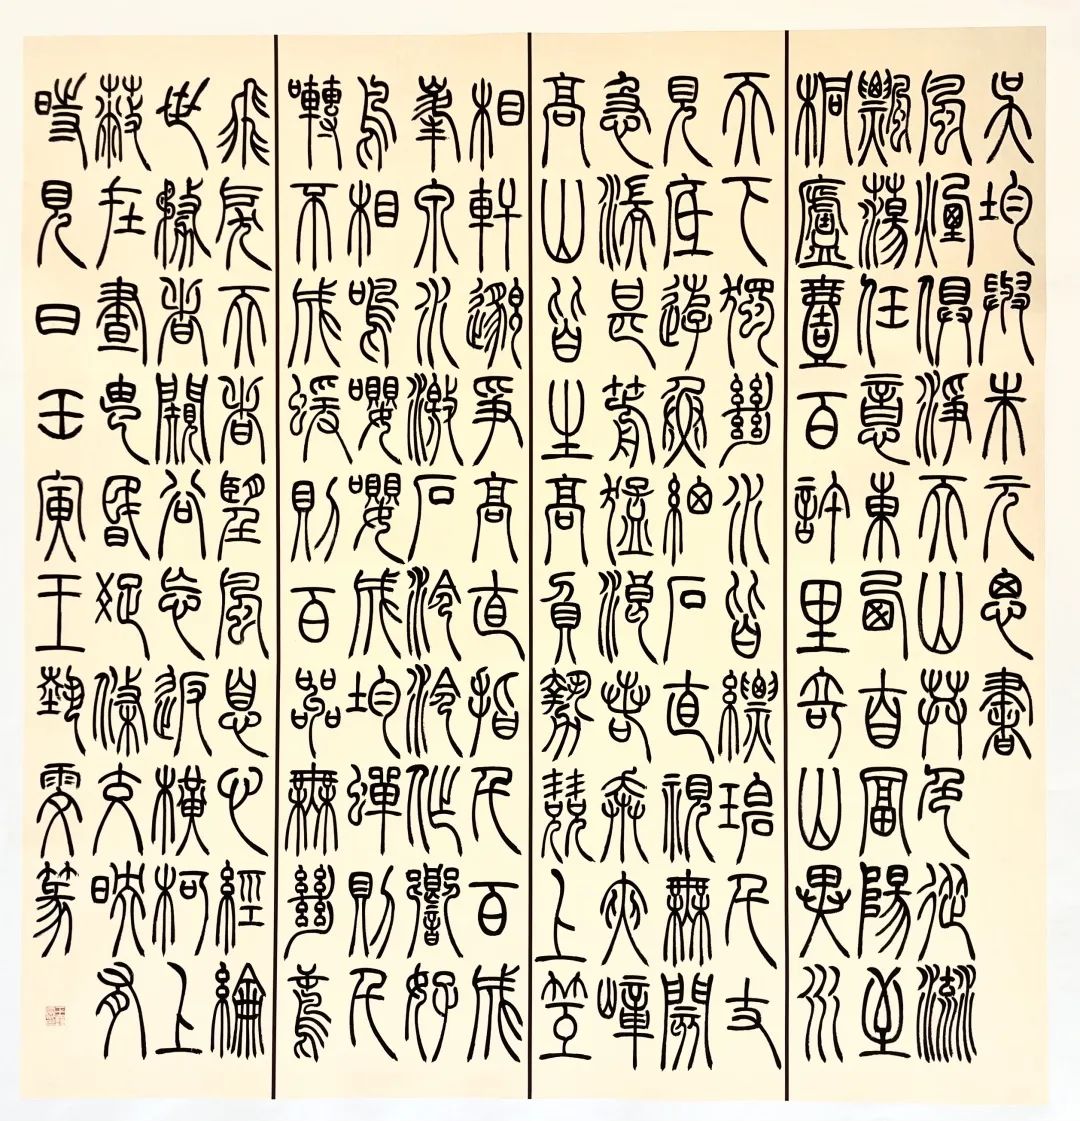 吳均與朱元思書
風煙俱淨天山共色從流
飄蕩任意東西自富陽至
桐廬壹百許里奇山異水
天下獨絕水皆縹碧千丈
見底游魚細石直視無礙
急湍甚箭猛浪若奔夾嶂
高山皆生高負勢競上互
相軒邈爭高直指千百成
峯泉水激石泠泠作響好
鳥相鳴嚶嚶成均蟬則千
囀不成蝯則百叫無絕鳶
飛戾天者望風息心經綸
世務者闚谷忘返橫柯上
蔽在晝猶昏疏條交映有
時見日壬寅王藝雯篆